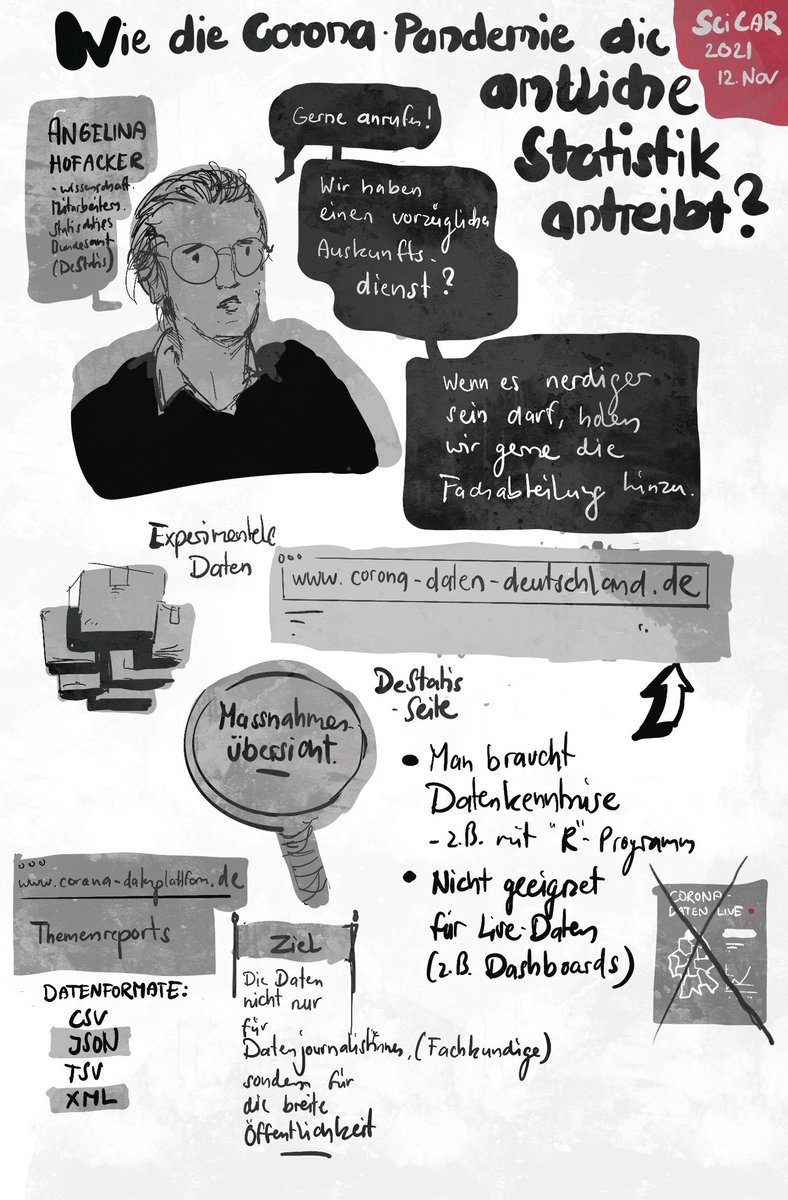 Wie die Corona-Pandemie die
amtliche
Statistik
antreibt?
SciCAR
2021
12. Nov
ANGELINA
HOFACKER
- wissenschaft.
Mitarbeiterin
Statistisches
Bundesamt
(DeStatis)
Gerne anrufen!
Wir haben
einen vorzüglichen
Auskunfts-
dienst?
Wenn es nerdiger
sein darf, holen
wir gerne die
Fachabteilung hinzu.
Experimentele
Daten
www.corona-daten-deutschland.de
Massnahmen-
übersicht.
DeStatis
- Seite
• Man braucht
Datenkenntnise
- z.B. mit "R"-Programm
• Nicht geeignet
für Live-Daten
(z.B. Dashboards)
CORONA-
DATEN LIVE
www.corona-datenplattform.de
Themenreports
DATENFORMATE:
CSV
JSON
TSV
XML
Ziel
Die Daten
nicht nur
für
Datenjournalist*innen, (Fachkundige)
sondern für
die breite
Öffentlichkeit